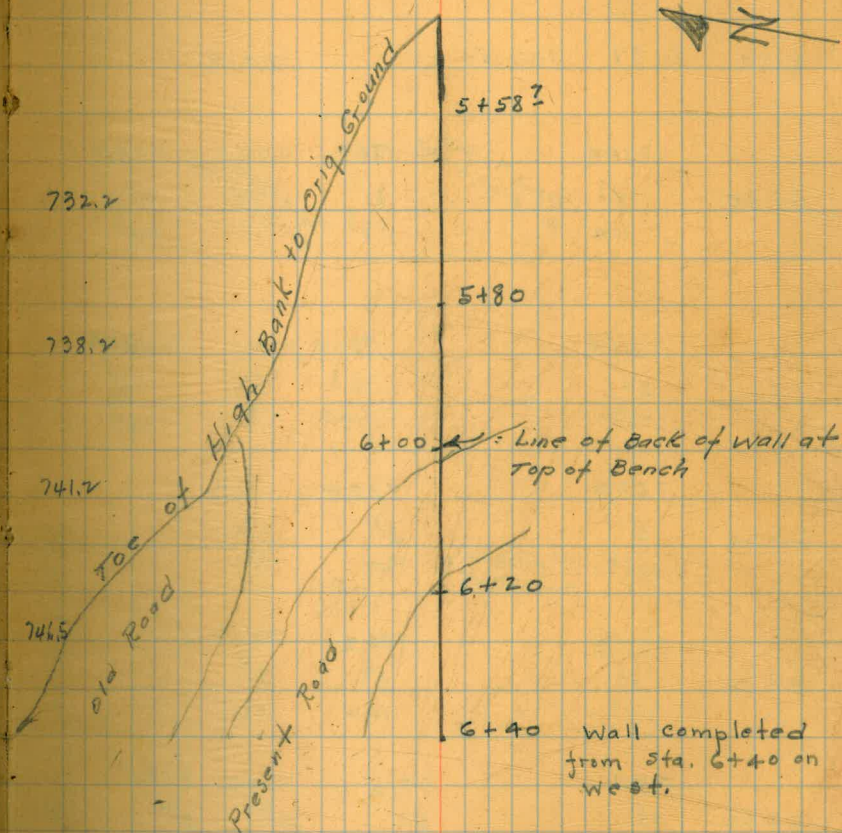 N
5+58?
732.2
5+80
738.2
Toe of High Bank to Orig. Ground
6+00
: Line of Back of Wall at
Top of Bench
741.2
6+20
Old Road
Present Road
6+40
Wall completed
from Sta. 6+40 on
West.